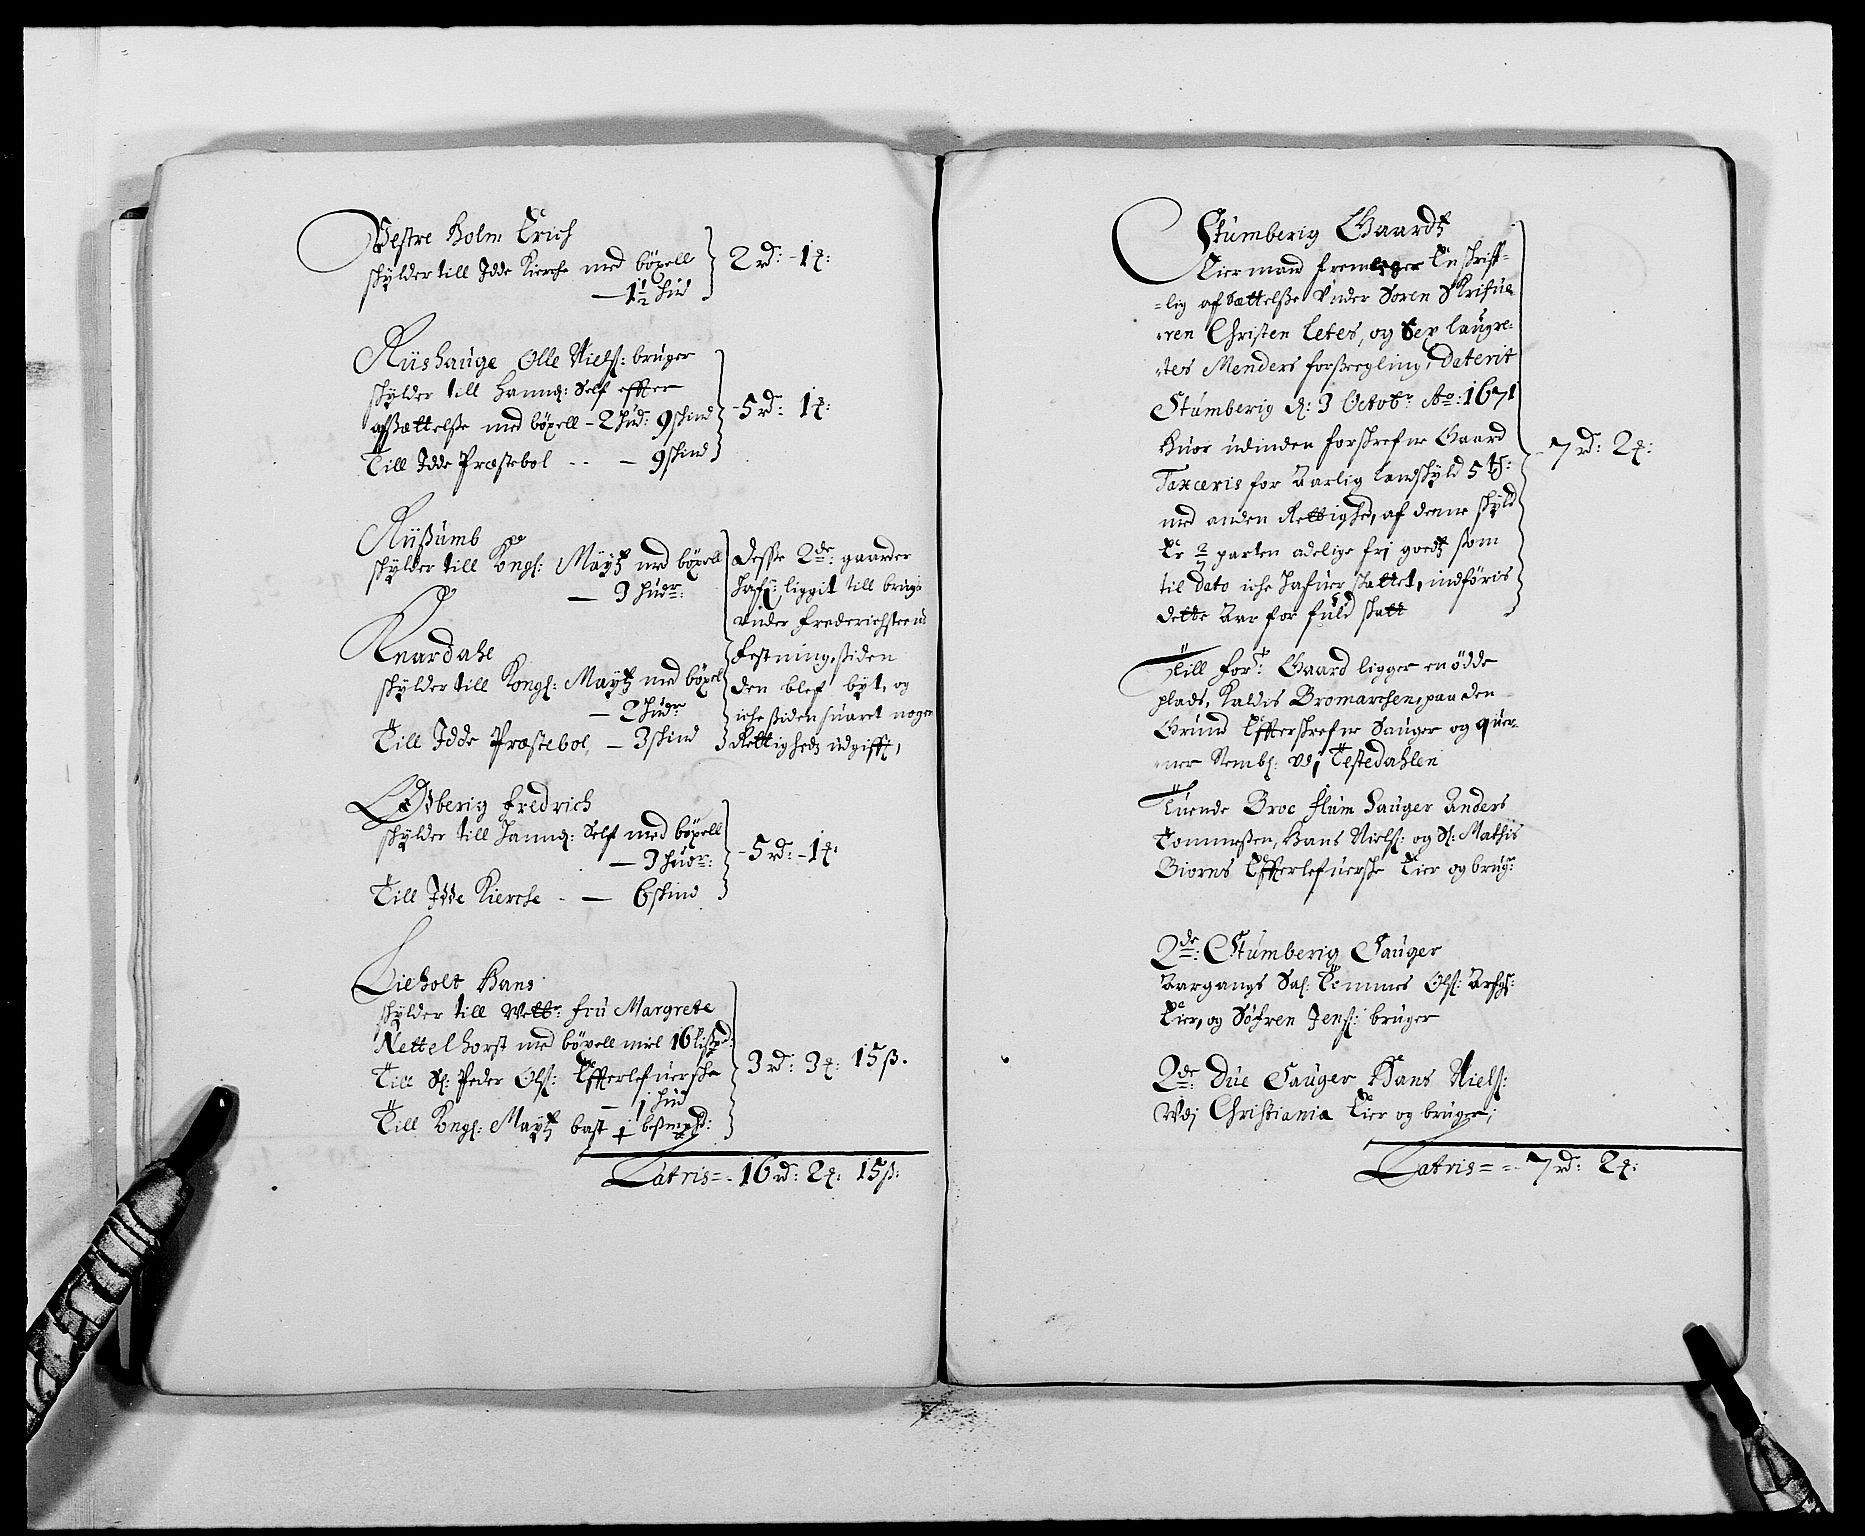 Vestre Holm Erich
schylder till Idde Kierche med böxell
— 1½ hud
2 rd: - 1 ꝗ:
Riishauge Olle Niels: bruger
schylder till hannẽ: Self effter
afsættelße med böxell - 2 hud: 9 skind
Till Idde Præstebol - - — 9 skind
- 5 rd: 1 ꝗ:
Riißumb
schylder till Kongl: Maytz med böxell
— 3 hudr:
Knardahl
schylder till Kongl: Maytz med böxel
— 2 hudr
Till Idde Præstebol, — 3 skind
Desse 2de: gaarder
hafr: liggit till brug
under Frederichsteens
Festning, ßiden
den blef byt, og
iche ßiden suaret nogen
Rettigheds udgifft,
Asberig Fredrich
schylder till hannẽ: Self med böxell
— 3 hudr:
Till Idde Kierche - — 6 skind
- 5 rd: - 1 ꝗ:
Lieholt Hans
schylder till Welb: fru Margrete
Nettelhorst med böxell miel 16 lißpd:
Till Sl: Peder Ols: Effterlefuersche
— 1 hud
Till Kongl: Maytz bast 1 bißmpd:
3 rd: 3 ꝗ: 15 ß.
Latris = - 16 rd: 2 ꝗ: 15 ß:
Stumberig Gaardz
Eiermand fremligger En skrifft-
-lig afsættelße Under Soren Skrifue
-ren Christen Letes, og Sex laugre-
-tes Menders forßegling, Daterit
Stumberig d: 3 Octobr: Ao: 1671
Huor udinden forschrefne Gaard
Taxceris for Aarlig landschyld 5 tß:
med anden Rettighed, af denne schyld
Er 2/7 parten adelige frj goedz som
til dato iche hafuer schattet, indföris
dette Aar for fuld schatt
- 7 rd: 2 ꝗ:
Till for: Gaard ligger en ödde
plads, Kaldis Bromarchen, paa den
Grund Effterschrefne Sauger og quer-
-ner Nembl: udj Testedahlen
Tuende Broe flum Sauger Anders
Tommesßen, Hans Niels: og Sl: Mathis
Biorns Effterlefuersche Eier og brugr:
2de: Stumberig Sauger
Aargangs Sal: Tommes Ols: Arfg:
Eier, og Söfren Jens: bruger
2de: Due Sauger Hans Niels:
Udj Christiania Eier og bruger;
Latris = = - 7 rd: 2 ꝗ: